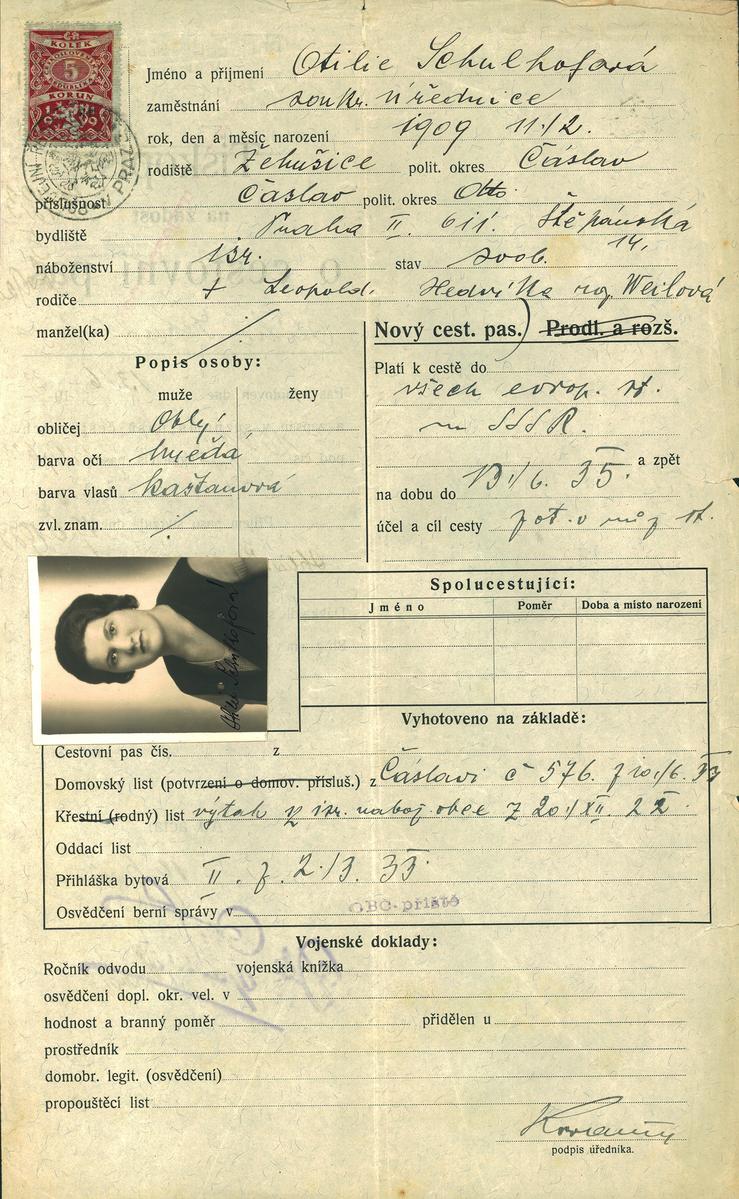 KOLEK
5
KORUN
Jméno a příjmení Otilie Schulhofová
zaměstnání soukr. úřednice
rok, den a měsíc narození 1909 11./2.
rodiště Žehušice polit. okres Čáslav
příslušnost Čáslav polit. okres
bydliště Praha II. 611. Štěpánská 14.
náboženství isr. stav svob.
rodiče + Leopold. Hedvika roz. Weilová
manžel(ka) /
Nový cest. pas.) Prodl. a rozš.
Popis osoby:
muže ženy
obličej Oblý
barva očí hnědá
barva vlasů kaštanová
zvl. znam. /
Platí k cestě do
všech evrop. st.
m SSSR.
a zpět
na dobu do 13./6. 35.
účel a cíl cesty
Spolucestující:
Jméno Poměr Doba a místo narození
Vyhotoveno na základě:
Cestovní pas čís. z
Domovský list (potvrzení o domov. přísluš.) z Čáslavi č 576. z 10./6. 33
Křestní (rodný) list výtah z isr. nábož. obce z 20./XII. 22.
Oddací list
Přihláška bytová II. z. 2./3. 33.
Osvědčení berní správy v OBC. příště
Vojenské doklady:
Ročník odvodu vojenská knížka
osvědčení dopl. okr. vel. v
hodnost a branný poměr přidělen u
prostředník
domobr. legit. (osvědčení)
propouštěcí list
podpis úředníka.